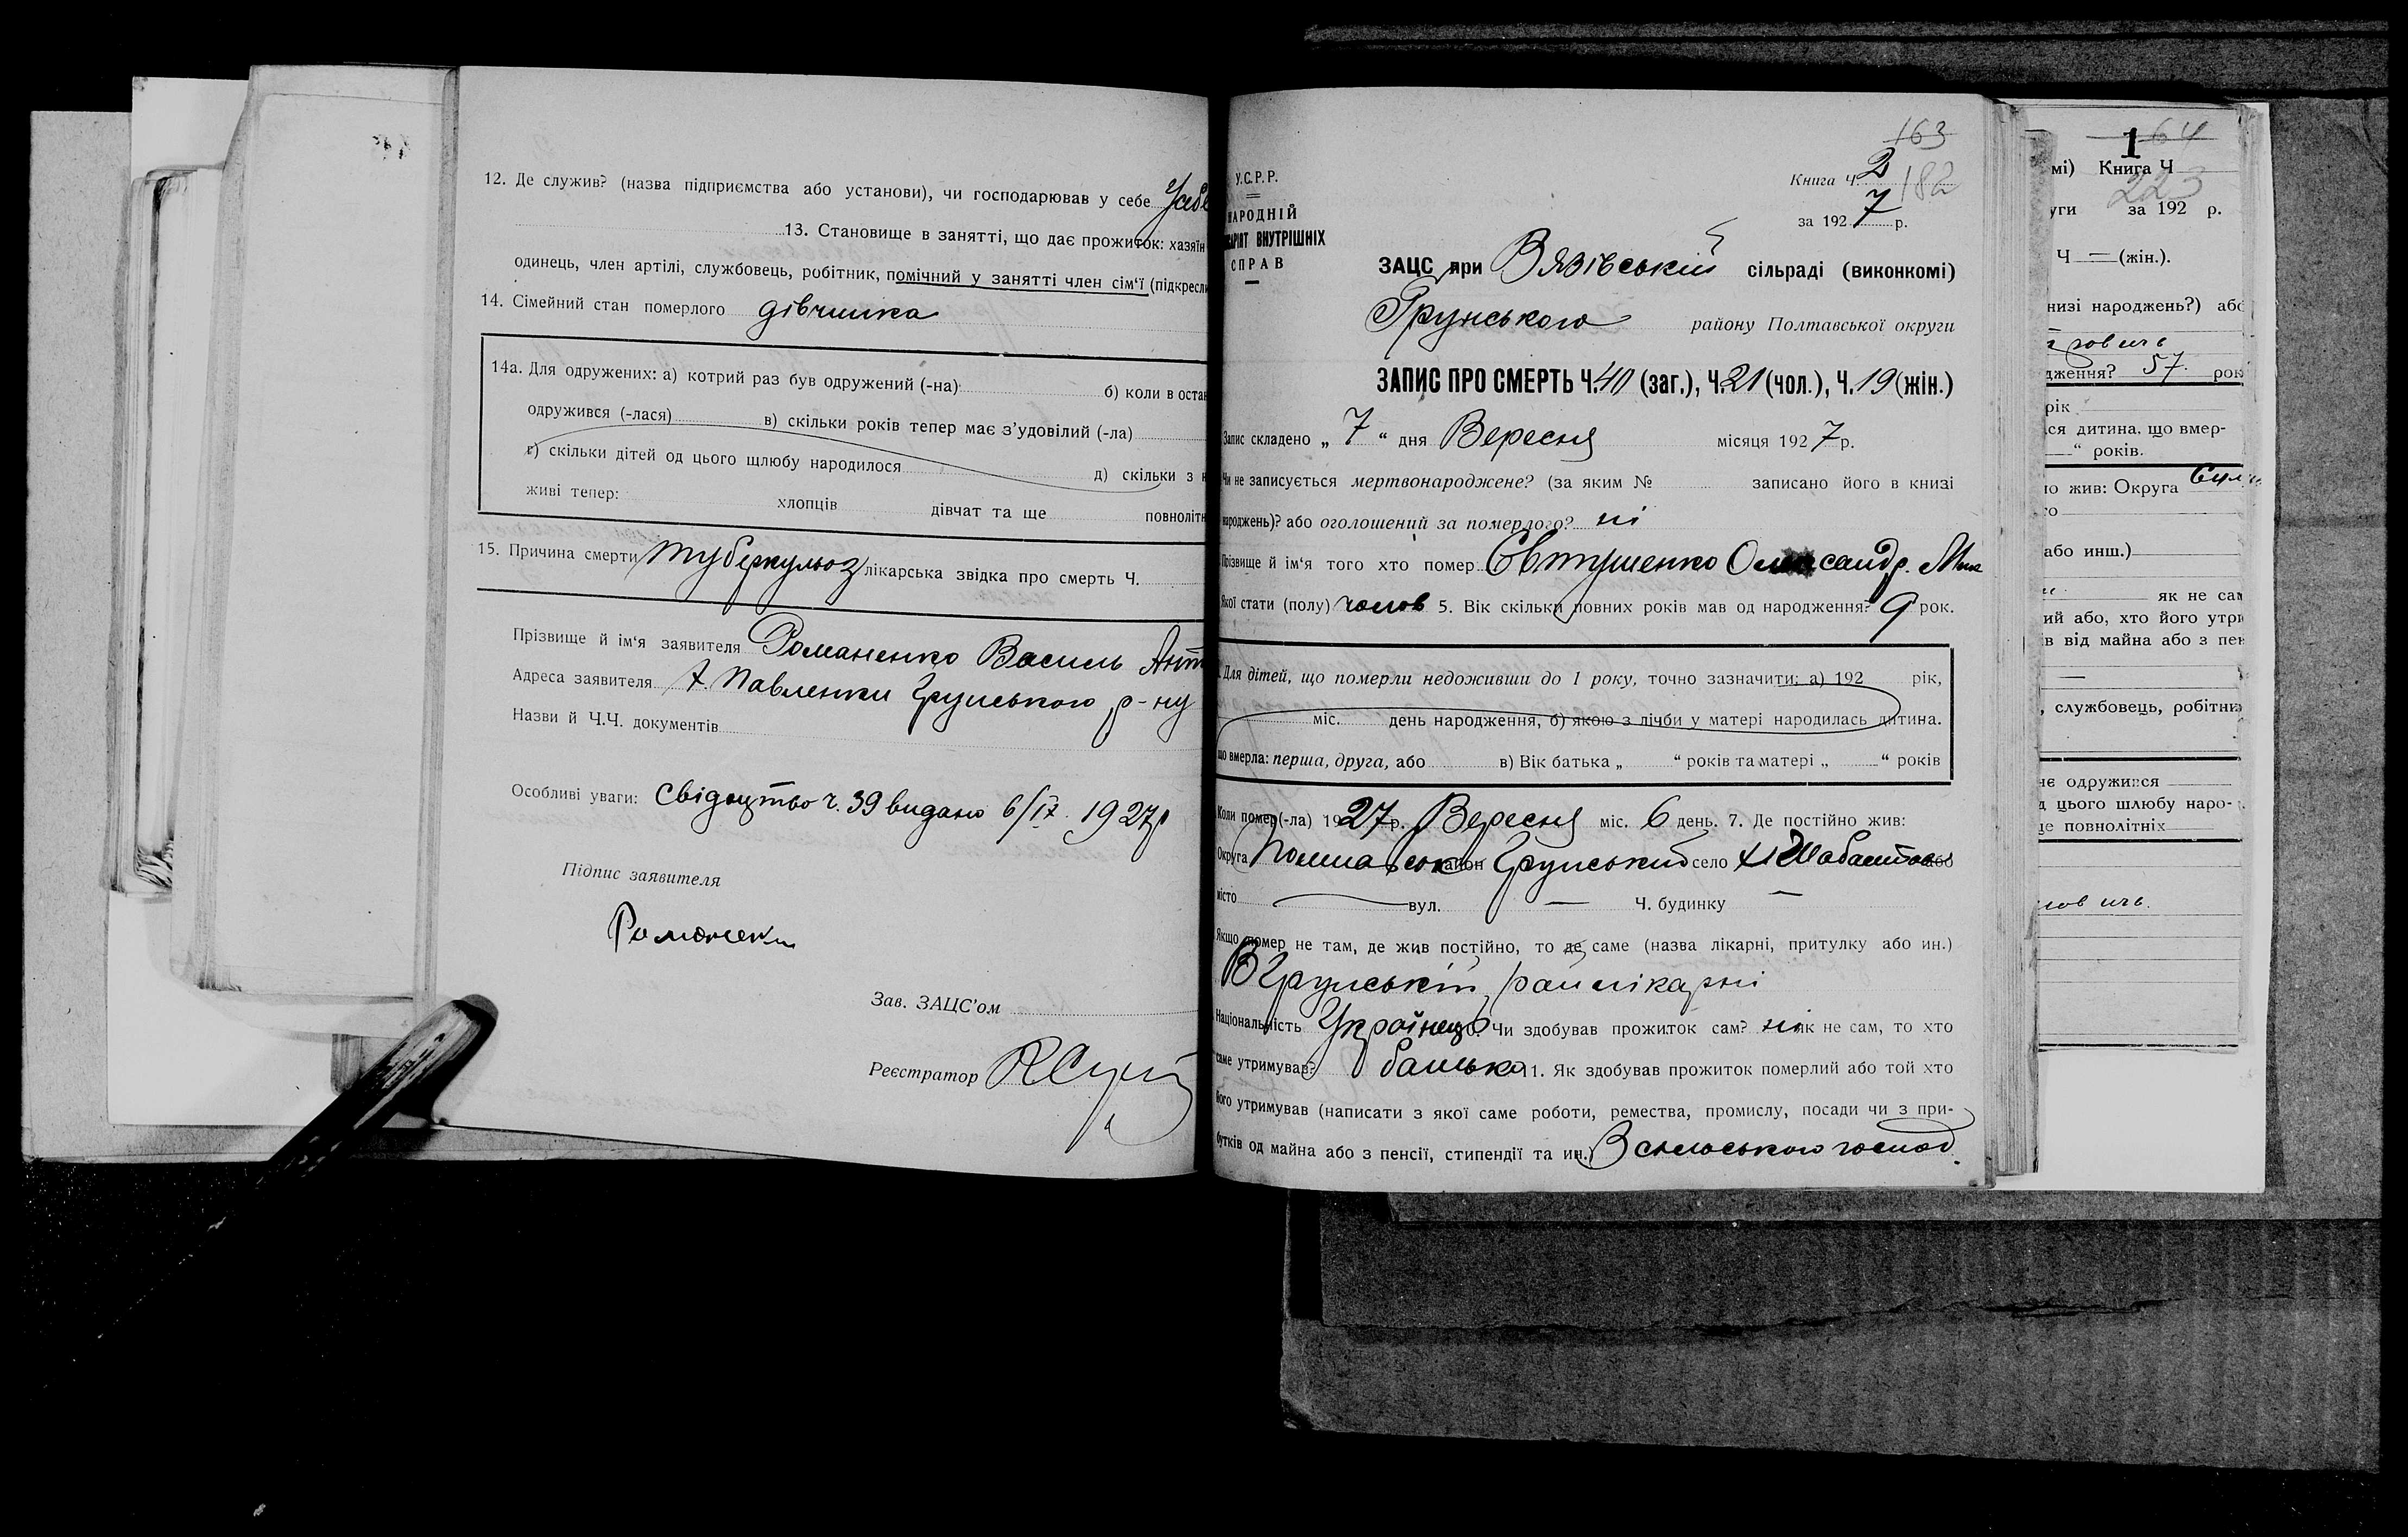 12. Де служив? (назва підприємства або установи), чи господарював у себе У себе
13. Становище в занятті, що дає прожиток: хазяїн
одинець, член артілі, службовець, робітник, помічний у занятті член сім'ї (підкресли
14. Сімейний стан померлого дівчинка
14а. Для одружених: а) котрий раз був одружений (-на) б) коли в остан
одружився (-лася) в) скільки років тепер має з'удовілий (-ла)
г) скільки дітей од цього щлюбу народилося д) скільки з н
живі тепер: хлопців дівчат та ще повноліт
15. Причина смерти туберкульоз лікарська звідка про смерть Ч.
Прізвище й ім'я заявителя Романенко Василь Ант
Адреса заявителя х. Павленки Грунського р-ну
Назви й Ч.Ч. документів
Особливі уваги: Свідоцтво ч. 39 видано 6/IX 1927р
Підпис заявителя
Романенко
Зав. ЗАЦС'ом
Реєстратор
163
Книга Ч. 2 182
за 1927 р.
У.С.Р.Р.
НАРОДНІЙ
ВНУТРІШНІХ
СПРАВ
ЗАЦС при Вязівській сільраді (виконкомі)
Грунського району Полтавської округи
ЗАПИС ПРО СМЕРТЬ Ч. 40 (заг.), Ч. 21 (чол.), Ч. 19 (жін.)
Запис складено „ 7 “ дня Вересня місяця 1927 р.
Чи не записується мертвонароджене? (за яким № записано його в книзі
народжень)? або оголошений за померлого? ні
Прізвище й ім'я того хто помер Євтушенко Олександр. Мик
Якої стати (полу) чолов 5. Вік скільки повних років мав од народження? 9 рок.
Для дітей, що померли недоживши до 1 року, точно зазначити: а) 192 рік,
міс. день народження, б) якою з лічби у матері народилась дитина.
що вмерла: перша, друга, або в) Вік батька „ “ років та матері „ “ років
Коли помер(-ла) 1927 р. Вересня міс. 6 день. 7. Де постійно жив:
Округа Полтавськ район Грунський село або
місто вул. — Ч. будинку —
Якщо помер не там, де жив постійно, то де саме (назва лікарні, притулку або ин.)
В Грунській райлікарні
Національність Українець Чи здобував прожиток сам? ні як не сам, то хто
саме утримував? батько 11. Як здобував прожиток померлий або той хто
його утримував (написати з якої саме роботи, ремества, промислу, посади чи з при-
бутків од майна або з пенсії, стипендії та ин.) З сільського господ.
1 64
мі) Книга Ч
223
уги за 192 р.
Ч — (жін.).
низі народжень?) або
дження? 57 рок
рік
ся дитина, що вмер-
“ років.
о жив: Округа
або инш.)
як не сам
ий або, хто його утри
ів від майна або з пен
, службовець, робітни
нє одружився
д цього шлюбу наро-
ще повнолітніх